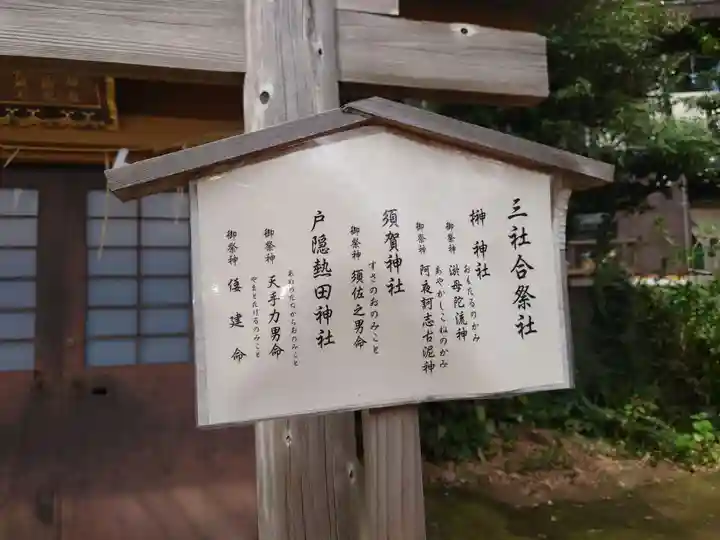 三社合祭社
榊 神社
御祭神 淤母陀流神
おもだるのかみ
御祭神 阿夜訶志古泥神
あやかしこねのかみ
須賀神社
御祭神 須佐之男命
すさのおのみこと
戸隠熱田神社
御祭神 天手力男命
あめのたぢからおのみこと
御祭神 倭建命
やまとたけるのみこと